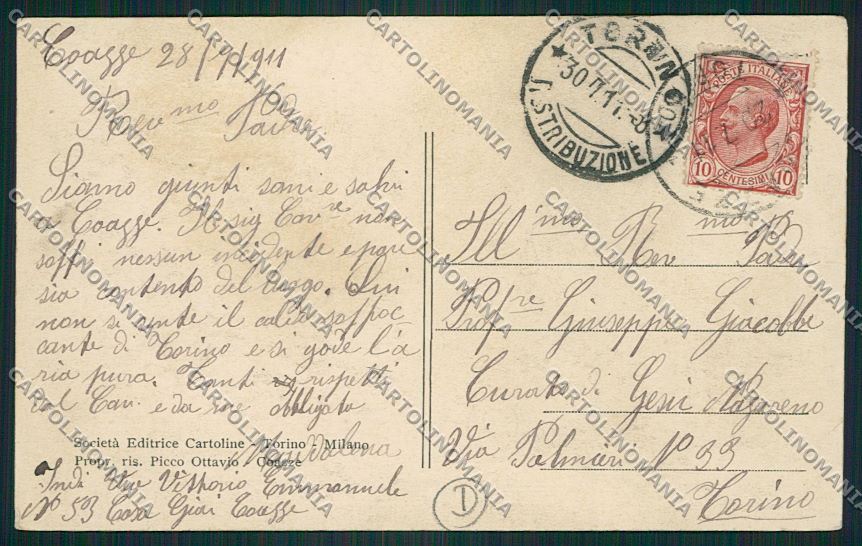 Coazze 28/7/911
Rev.mo Padre
Siamo giunti sani e salvi
a Coazze. Il sig Cav.re non
soffrì nessun incidente e pare
sia contento del luogo. Qui
non si sente il caldo soffoc-
cante di Torino e si gode l'a
ria pura. Tanti rispetti
dal Cav. e da me obbligata
Maddalena
Società Editrice Cartoline - Torino - Milano
Propr. ris. Picco Ottavio - Coazze
Indi Via Vittorio Emmanuele
N° 53 Casa Coazze
TORINO
30.7.11.
DISTRIBUZIONE
POSTE ITALIANE
10 CENTESIMI 10
Ill.mo Rev.mo Padre
Prof.re Giuseppe Giacobbe
Curato di Gesù Nazareno
Via Palmieri N° 39
Torino
CARTOLINOMANIA